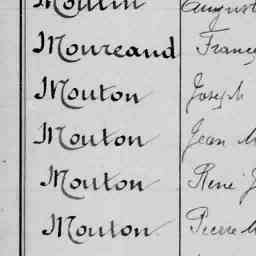 Moulin August
Moureaud Franç
Mouton Joseph
Mouton Jean M
Mouton René J
Mouton Pierre M